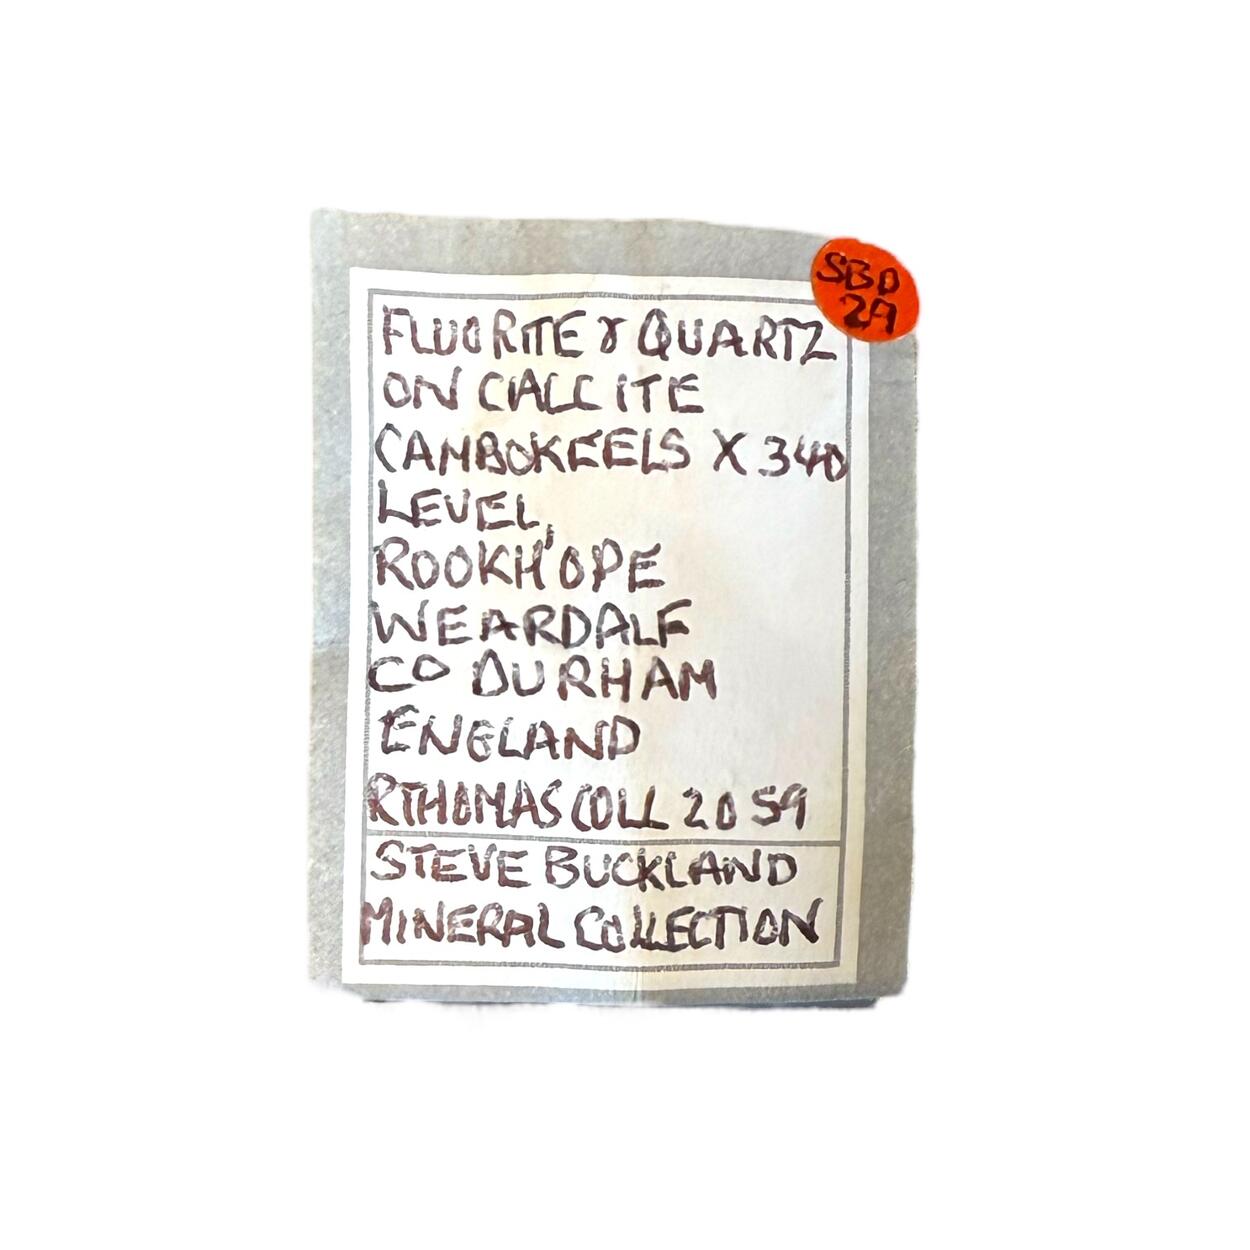 SBD
2A
FLUORITE & QUARTZ
ON CALCITE
CAMBOKEELS X 340
LEVEL,
ROOKHOPE
WEARDALE
CO DURHAM
ENGLAND
R THOMAS COLL 2059
STEVE BUCKLAND
MINERAL COLLECTION